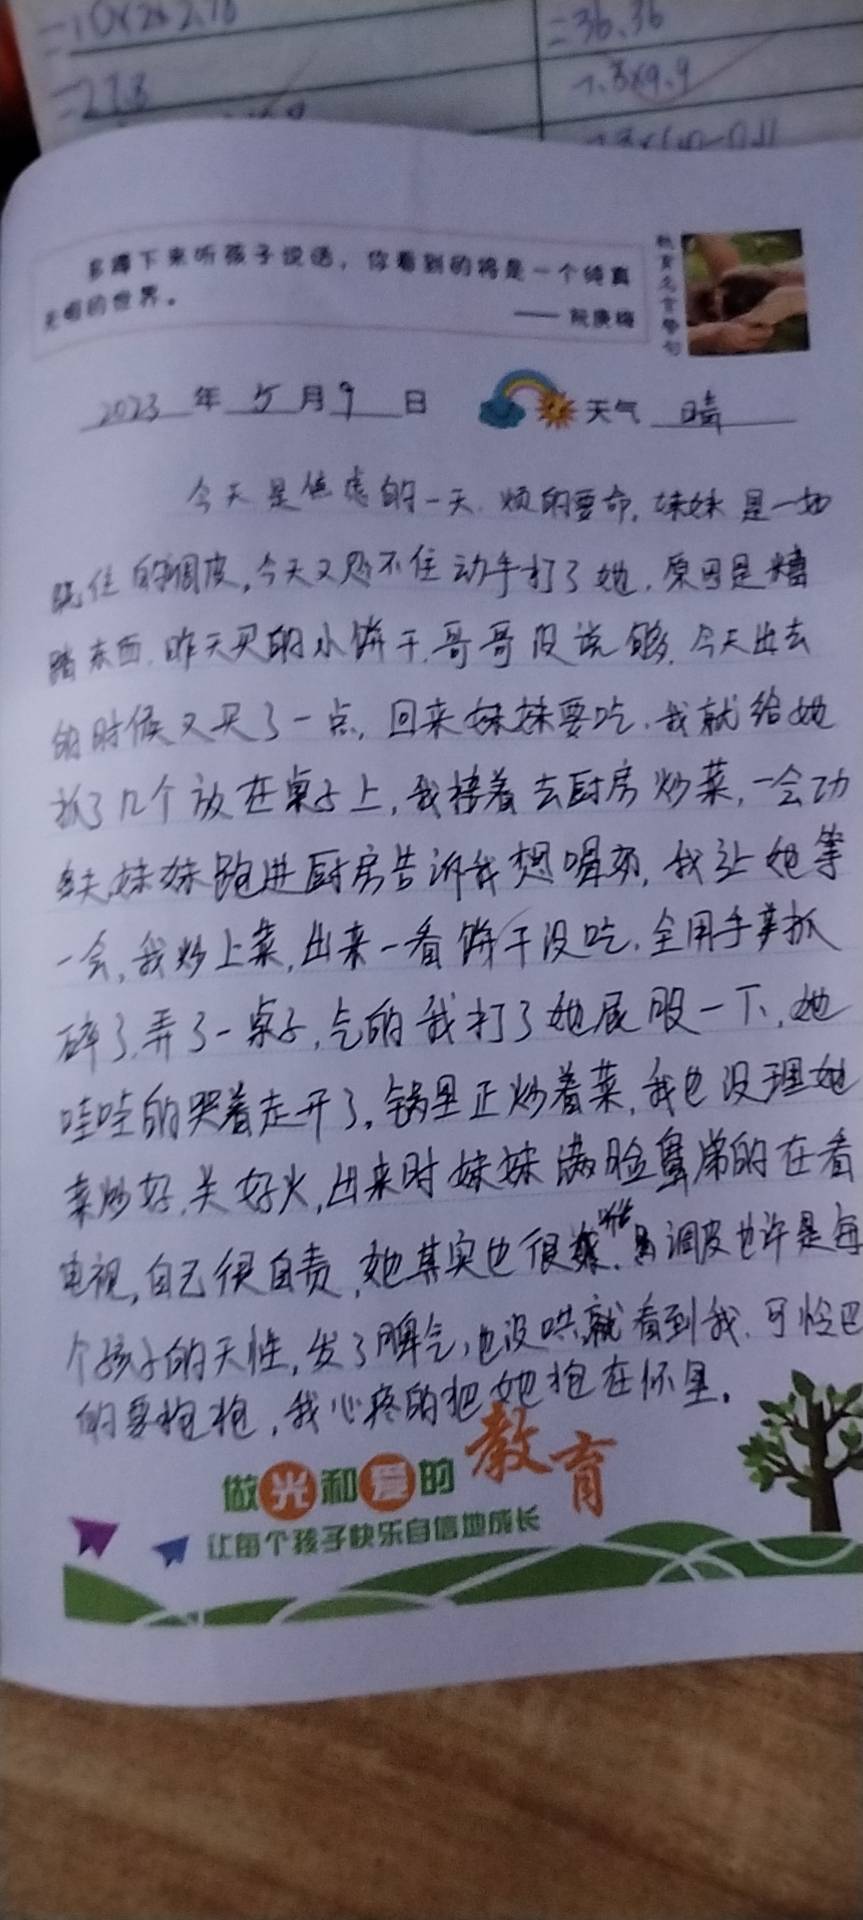 =10×2×2.78
=36.36
=27.8
7.3×9.9
多蹲下来听孩子说话，你看到的将是一个纯真
无暇的世界。
—— 阮庚梅
教育名言警句
2023 年 5 月 9 日 天气 晴
今天是焦虑的一天，烦的要命，妹妹是一如
既往的调皮，今天又忍不住动手打了她，原因是糟
蹋东西，昨天买的小饼干，哥哥没说够，今天出去
的时候又买了一点，回来妹妹要吃，我就给她
抓了几个放在桌子上，我接着去厨房炒菜，一会功
夫妹妹跑进厨房告诉我想喝奶，我让她等
一会，我炒上菜，出来一看饼干没吃，全用手抓
碎了，弄了一桌子，气的我打了她屁股一下，她
哇哇的哭着走开了。锅里正炒着菜，我也没理她
菜炒好，关好火，出来时妹妹满脸的在看
电视，自己很自责，她其实也很乖，调皮也许是每
个孩子的天性，发了脾气，也没哄，就看到我，可怜巴
的要抱抱，我心疼的把她抱在怀里。
做光和爱的教育
让每个孩子快乐自信地成长